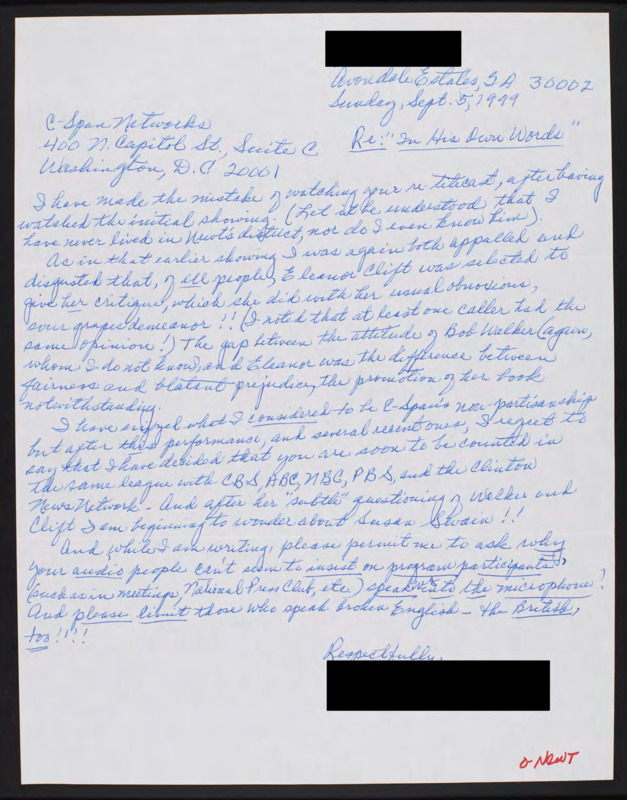 Avondale Estates, GA 30002
Sunday, Sept. 5, 1999
C-Span Networks
400 N. Capitol St, Suite C
Washington, D.C 20001
Re: "In His Own Words"
I have made the mistake of watching your re-telecast, after having
watched the initial showing. (Let it be understood that I
have never lived in Newt's district, nor do I even know him).
As in that earlier showing I was again both appalled and
disgusted that, of all people, Eleanor Clift was selected to
give her critique, which she did with her usual obnoxious,
sour grapes demeanor!! (I noted that at least one caller had the
same opinion!) The gap between the attitude of Bob Walker (again,
whom I do not know) and Eleanor was the difference between
fairness and blatant prejudice, the promotion of her book
notwithstanding.
I have enjoyed what I considered to be C-Span's non-partisanship
but after this performance, and several recent ones, I regret to
say that I have decided that you are soon to be counted in
the same league with CBS, ABC, NBC, PBS, and the Clinton
News Network - And after her "subtle" questioning of Walker and
Clift I am beginning to wonder about Susan Swain!!
And, while I am writing, please permit me to ask why
your audio people can't seem to insist on program participants,
(such as in meetings, National Press Club, etc.) speak into the microphone?
And please limit those who speak broken English - the British,
too!!!!
Respectfully,
O-NEWT